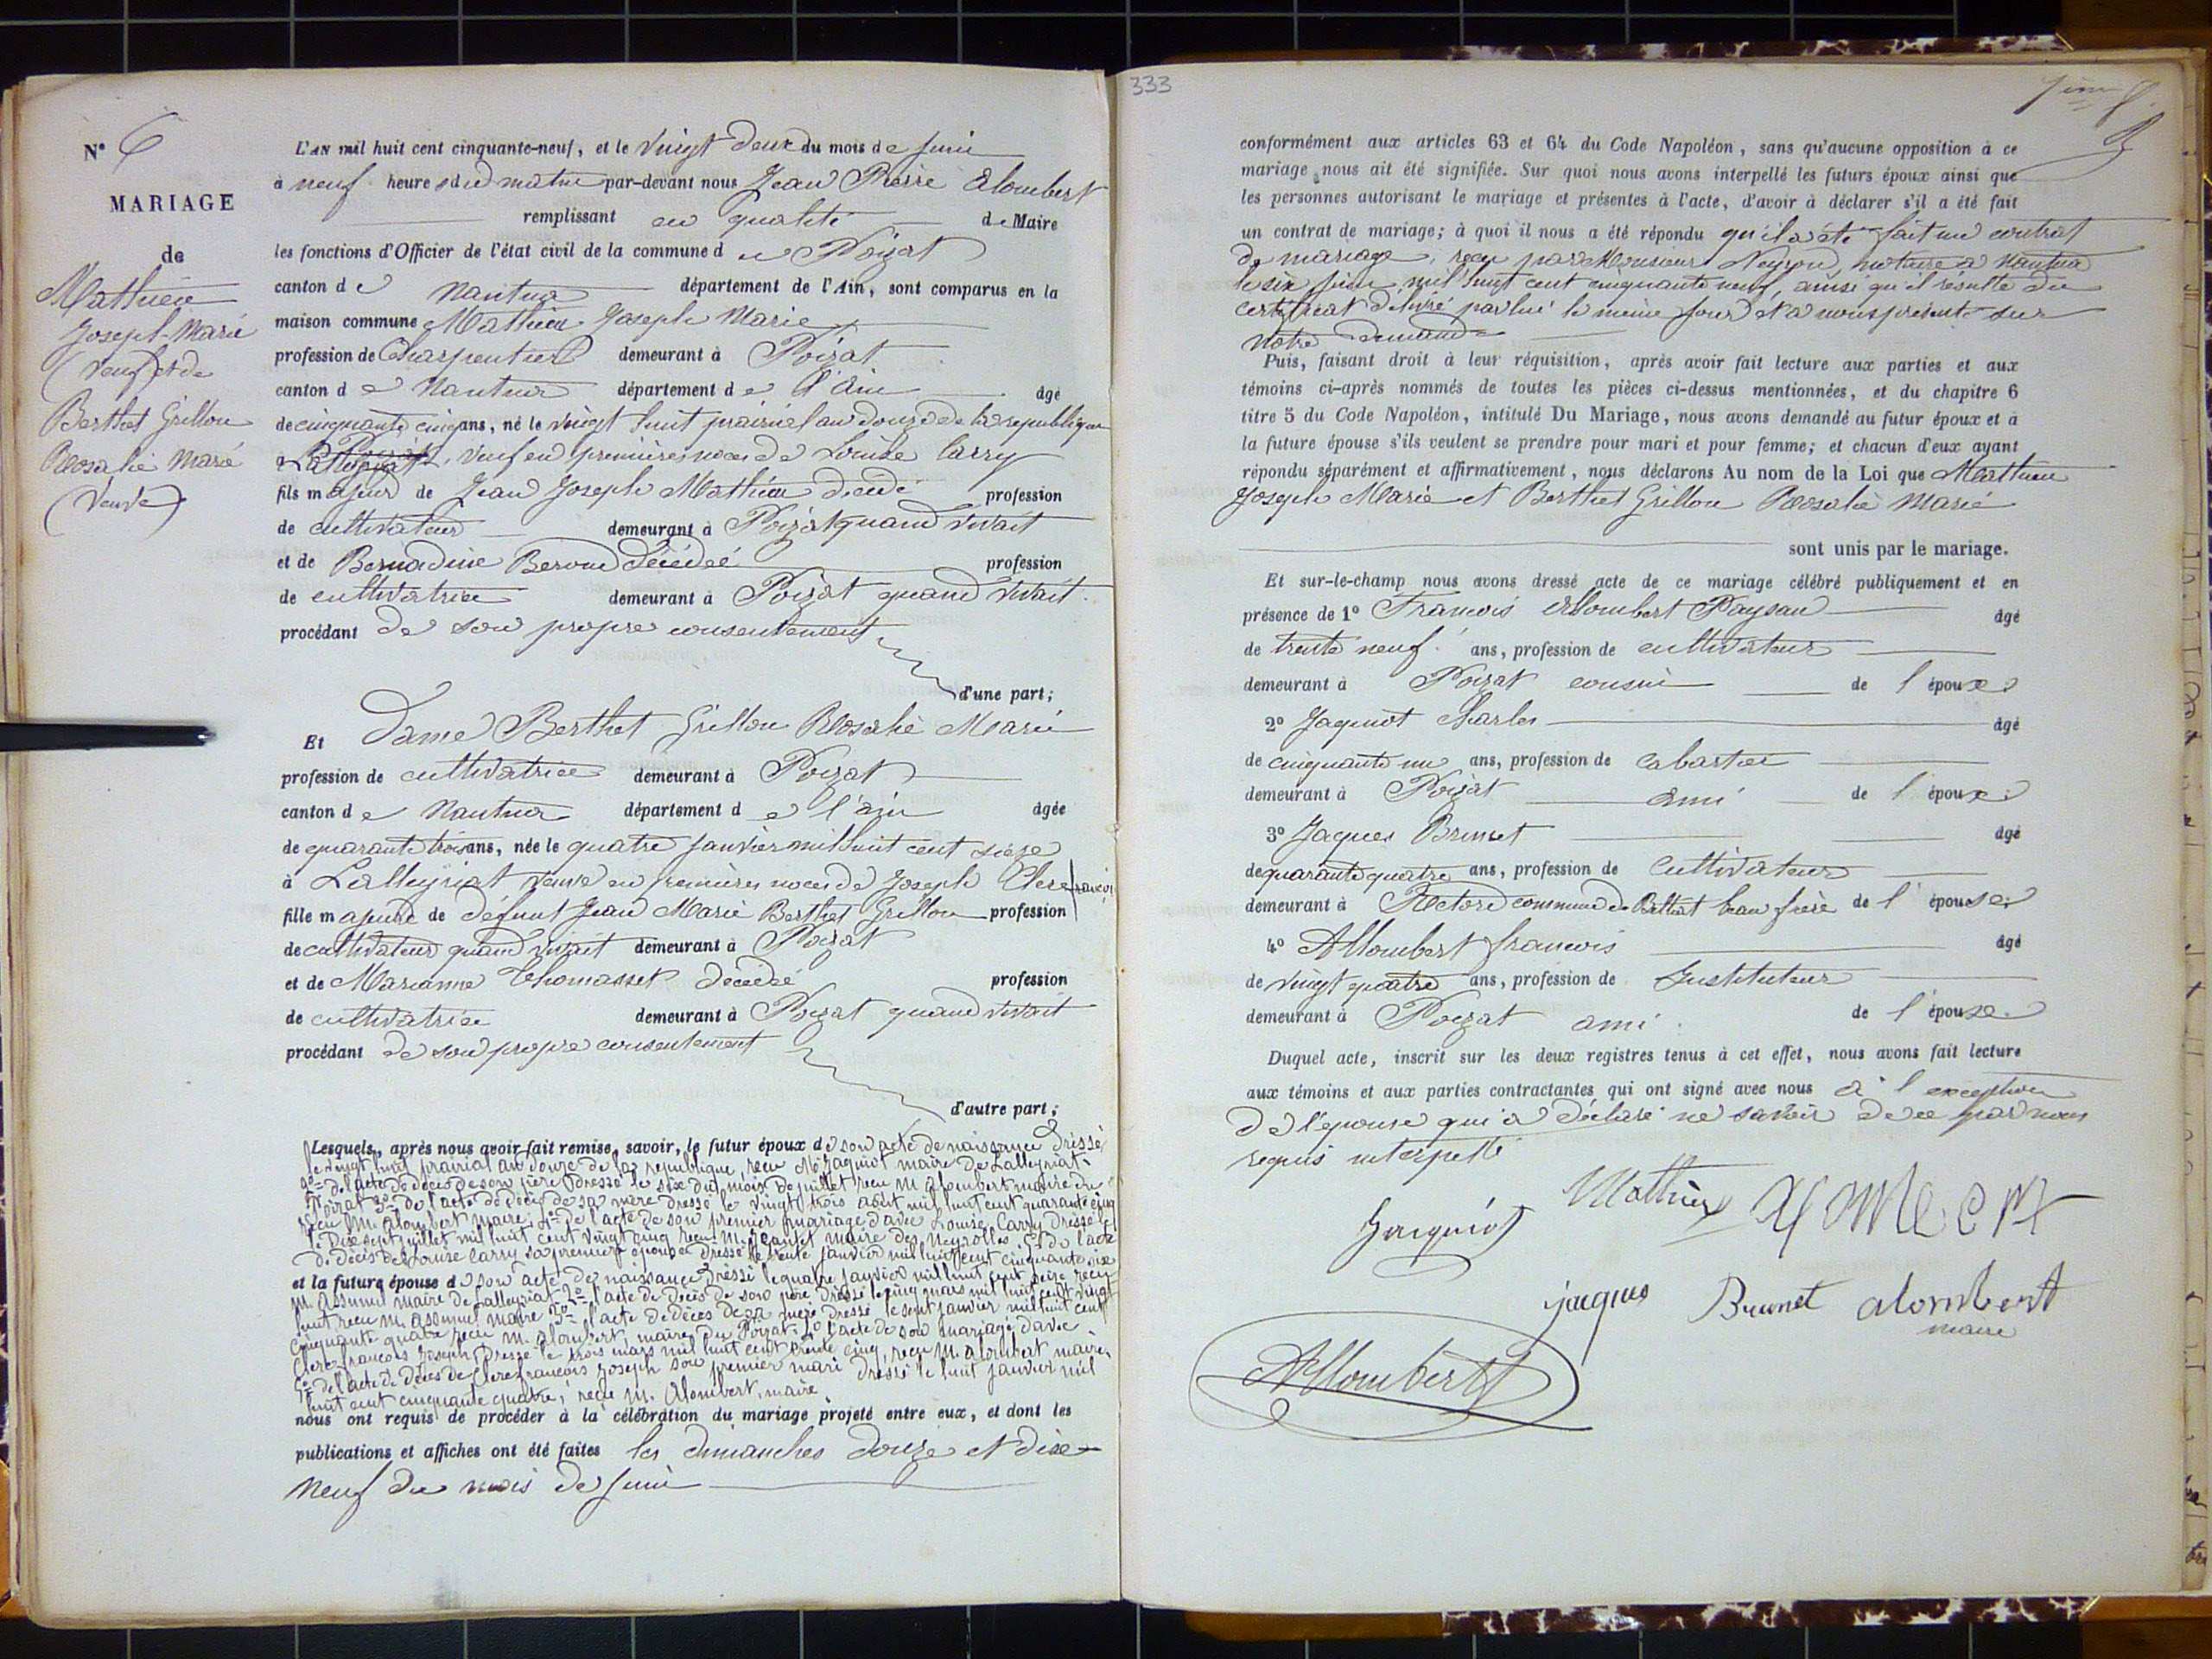 N° 6
MARIAGE
de
Mathieu
Joseph Marie
(veuf) et de
Berthet Grillon
Rosalie Marie
(Veuve)
L'AN mil huit cent cinquante-neuf, et le vingt deux du mois de juin
à neuf heures du matin par-devant nous Jean Pierre Alombert
remplissant en qualité de Maire
les fonctions d'Officier de l'état civil de la commune du Poizat
canton de Nantua département de l'Ain, sont comparus en la
maison commune Mathieu Joseph Marie
profession de Charpentier demeurant à Poizat
canton de Nantua département de l'Ain âgé
de cinquante cinq ans, né le vingt huit prairial an douze de la république
à Lalleyriat, veuf en premières noces de Louise Carry
fils majeur de Jean Joseph Mathieu décédé profession
de cultivateur demeurant à Poizat quand vivait
et de Bernadine Beroud décédée profession
de cultivatrice demeurant à Poizat quand vivait
procédant de son propre consentement
d'une part;
Et Dame Berthet Grillon Rosalie Marie
profession de cultivatrice demeurant à Poizat
canton de Nantua département de l'ain âgée
de quarante trois ans, née le quatre janvier mil huit cent seize
à Lalleyriat veuve en premières noces de Joseph Clerc françois
fille majeure de défunt Jean Marie Berthet Grillon profession
de cultivateur quand vivait demeurant à Poizat
et de Marianne Thomasset décédée profession
de cultivatrice demeurant à Poizat quand vivait
procédant de son propre consentement
d'autre part;
Lesquels, après nous avoir fait remise, savoir, le futur époux de son acte de naissance dressé
le vingt huit prairial an douze de la république, reçu M. Jaquiot maire de Lalleyriat
2° de l'acte de décès de son père dressé le six du mois de juillet reçu M. Alombert maire du
Poizat 3° de l'acte de décès de sa mère dressé le vingt trois août mil huit cent quarante cinq
reçu M. Alombert maire, 4° de l'acte de son premier mariage d'avec Louise Carry dressé
le dix sept juillet mil huit cent vingt cinq reçu M. maire des Neyrolles 5° de l'acte
de décès de Louise Carry sa première épouse dressé le trente janvier mil huit cent cinquante six
et la future épouse de son acte de naissance dressé le quatre janvier mil huit cent seize reçu
M. Assumel maire de Lalleyriat 2° l'acte de décès de son père dressé le cinq mars mil huit cent vingt
huit reçu M. Assumel maire 3° l'acte de décès de sa mère dressé le sept janvier mil huit cent
cinquante quatre reçu M. Alombert, maire du Poizat 4° l'acte de son mariage d'avec
Clerc françois Joseph dressé le trois mars mil huit cent trente cinq, reçu M. Alombert maire,
5° de l'acte de décès de Clerc françois Joseph son premier mari dressé le huit janvier mil
huit cent cinquante quatre, reçu M. Alombert, maire
nous ont requis de procéder à la célébration du mariage projeté entre eux, et dont les
publications et affiches ont été faites les dimanches douze et dix
neuf du mois de juin
333
conformément aux articles 63 et 64 du Code Napoléon, sans qu'aucune opposition à ce
mariage nous ait été signifiée. Sur quoi nous avons interpellé les futurs époux ainsi que
les personnes autorisant le mariage et présentes à l'acte, d'avoir à déclarer s'il a été fait
un contrat de mariage; à quoi il nous a été répondu qu'il a été fait un contrat
de mariage, reçu par Monsieur Neyrou, notaire à Nantua
le six juin mil huit cent cinquante neuf, ainsi qu'il résulte du
certificat délivré par lui le même jour et à nous présenté sur
notre demande
Puis, faisant droit à leur réquisition, après avoir fait lecture aux parties et aux
témoins ci-après nommés de toutes les pièces ci-dessus mentionnées, et du chapitre 6
titre 5 du Code Napoléon, intitulé Du Mariage, nous avons demandé au futur époux et à
la future épouse s'ils veulent se prendre pour mari et pour femme; et chacun d'eux ayant
répondu séparément et affirmativement, nous déclarons Au nom de la Loi que Mathieu
Joseph Marie et Berthet Grillon Rosalie Marie
sont unis par le mariage.
Et sur-le-champ nous avons dressé acte de ce mariage célébré publiquement et en
présence de 1° Francois Allombert Paysan âgé
de trente neuf ans, profession de cultivateur
demeurant à Poizat cousin de l'époux
2° Jaquiot Charles âgé
de cinquante un ans, profession de cabartier
demeurant à Poizat ami de l'époux
3° Jaques Brunet âgé
de quarante quatre ans, profession de cultivateur
demeurant à commune de beau frère de l'épouse
4° Allombert francois âgé
de vingt quatre ans, profession de Instituteur
demeurant à Poizat ami de l'épouse
Duquel acte, inscrit sur les deux registres tenus à cet effet, nous avons fait lecture
aux témoins et aux parties contractantes qui ont signé avec nous à l'exception
de l'épouse qui a déclaré ne savoir de ce par nous
requis interpellé
Mathieu
Jaquiot
jacques Brunet alombert
maire
Allombert